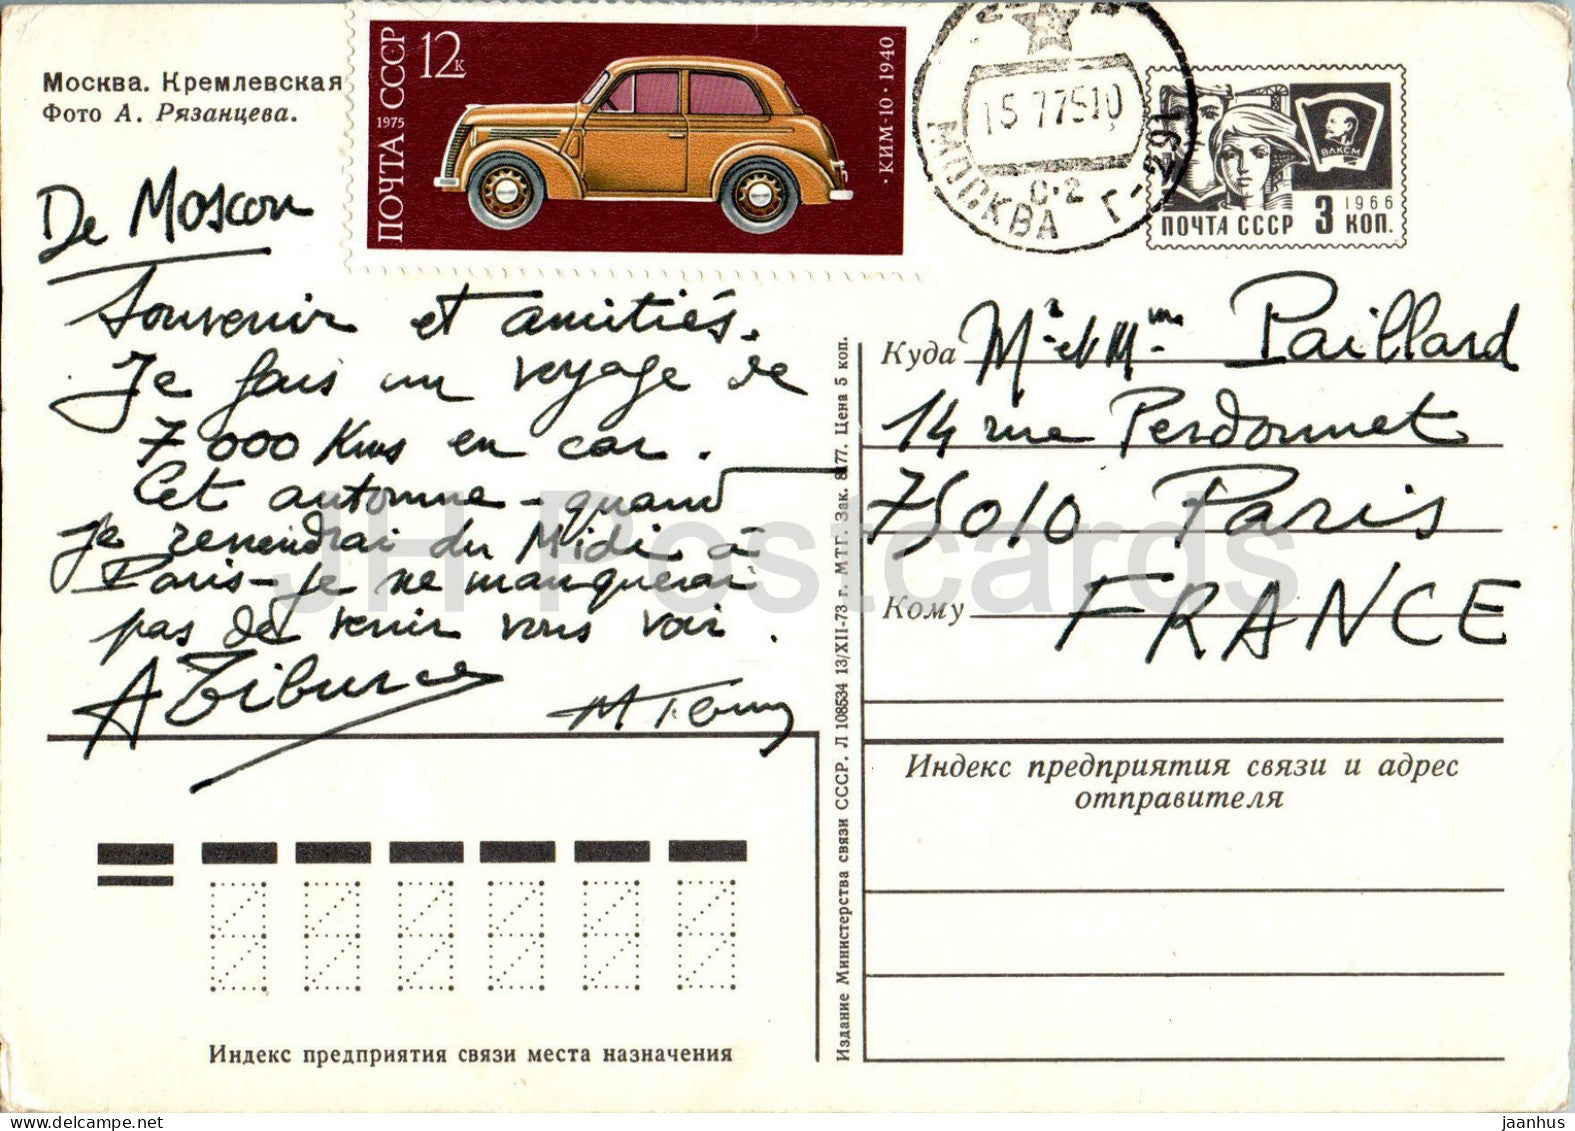 Москва. Кремлевская
Фото А. Рязанцева.
ПОЧТА СССР
1975
12 к
КИМ-10 · 1940
15 7 75 10
МОСКВА Г-291
С-2
ВЛКСМ
1966
ПОЧТА СССР 3 КОП.
De Moscou
Souvenir et amitiés.
Je fais un voyage de
7 000 Kms en car.
Cet automne - quand
je reviendrai du Midi à
Paris - je ne manquerai
pas de venir vous voir.
A Tiburce
Куда Mr et Mme Paillard
14 rue Perdonnet
75010 Paris
Кому FRANCE
Индекс предприятия связи и адрес
отправителя
Индекс предприятия связи места назначения
Издание Министерства связи СССР. Л 108534 13/XII-73 г. МТГ. Зак. 8177. Цена 5 коп.
JH Postcards
delcampe.net
jaanhus